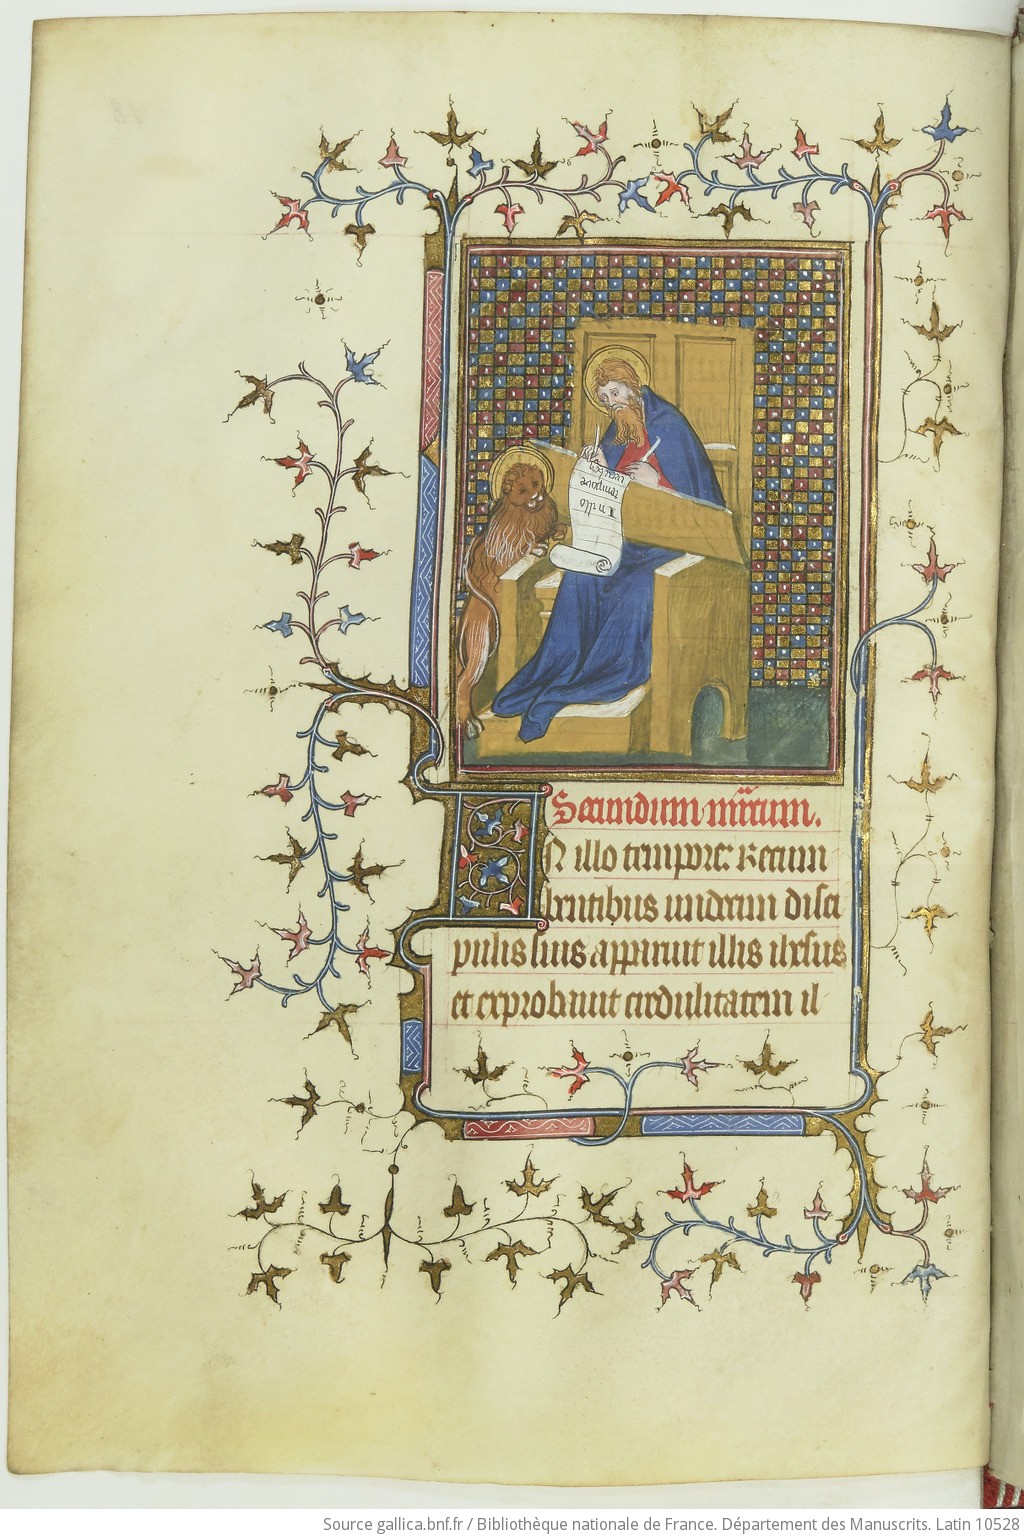 In illo
tempore
recumben
Secundum marcum.
IN illo tempore: Recum
bentibus undecim disci
pulis suis apparuit illis ihesus
et exprobavit credulitatem il
Source gallica.bnf.fr / Bibliothèque nationale de France. Département des Manuscrits. Latin 10528